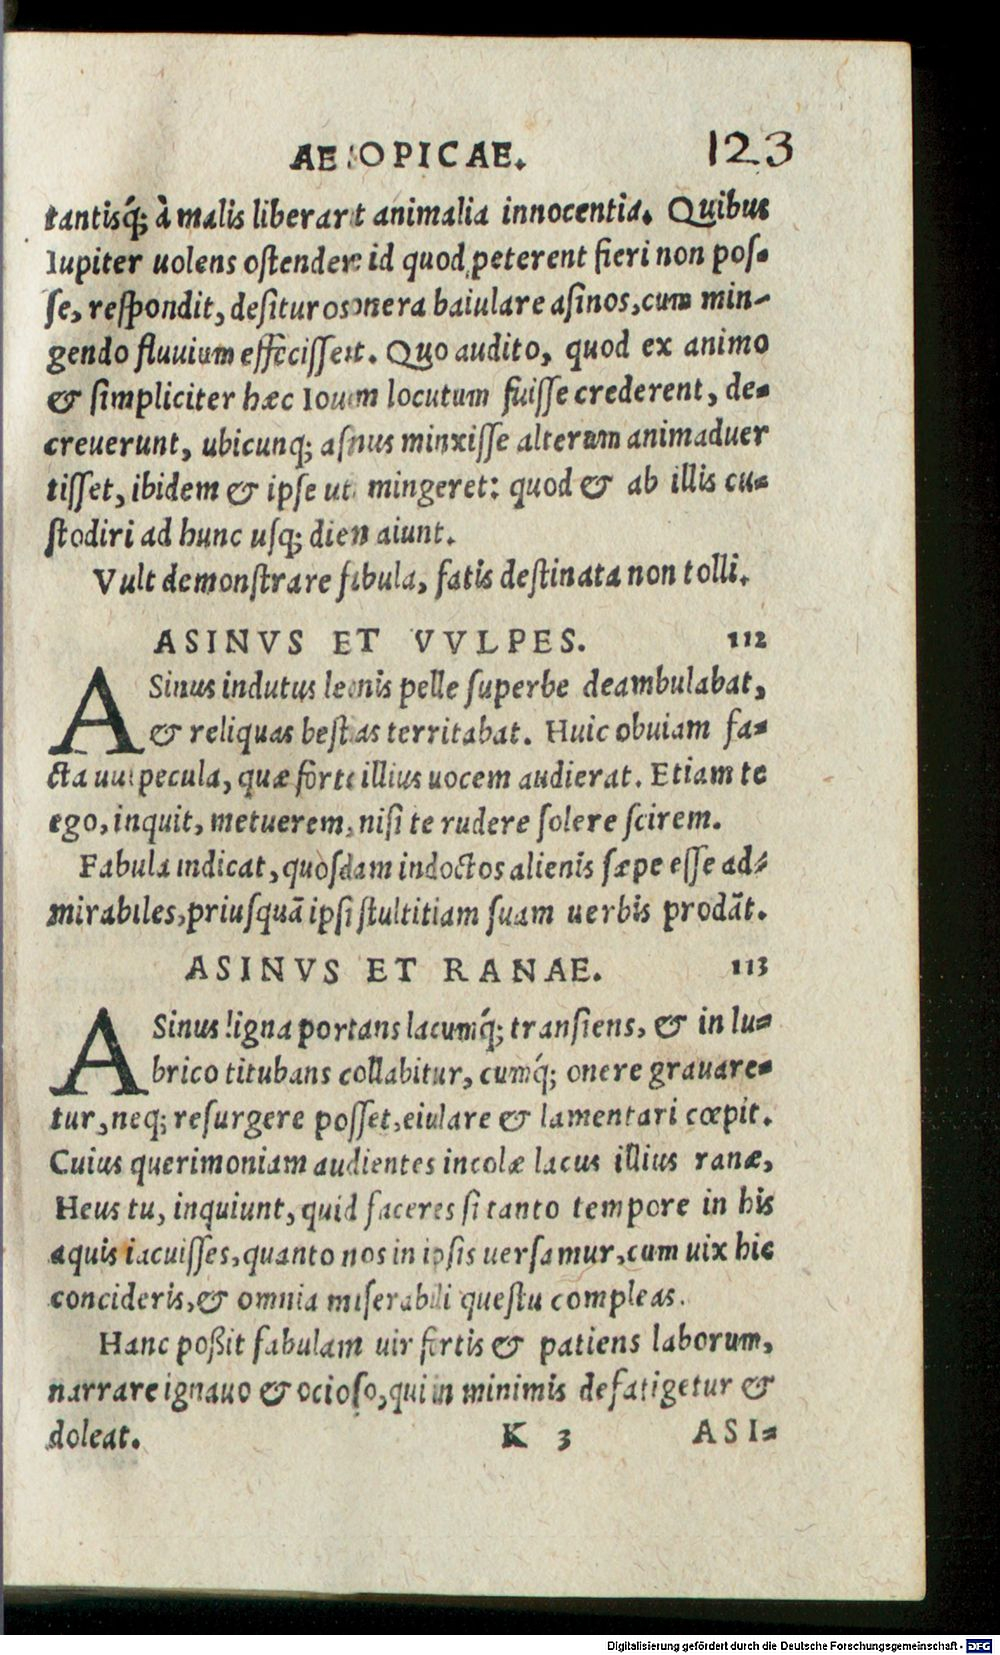 AESOPICAE. 123
tantisq́; à malis liberaret animalia innocentia. Quibus
Iupiter uolens ostendere id quod peterent fieri non pos-
se, respondit, desituros onera baiulare asinos, cum min-
gendo fluuium effecissent. Quo audito, quod ex animo
& simpliciter hæc Iouem locutum fuisse crederent, de-
creuerunt, ubicunq; asinus minxisse alterum animaduer
tisset, ibidem & ipse ut mingeret: quod & ab illis cu-
stodiri ad hunc usq; diem aiunt.
Vult demonstrare fabula, fatis destinata non tolli.
ASINVS ET VVLPES. 112
ASinus indutus leonis pelle superbe deambulabat,
& reliquas bestias territabat. Huic obuiam fa-
cta uulpecula, quæ forte illius uocem audierat. Etiam te
ego, inquit, metuerem, nisi te rudere solere scirem.
Fabula indicat, quosdam indoctos alienis sæpe esse ad-
mirabiles, priusquã ipsi stultitiam suam uerbis prodãt.
ASINVS ET RANAE. 113
ASinus ligna portans lacumq́; transiens, & in lu-
brico titubans collabitur, cumq́; onere grauare-
tur, neq; resurgere posset, eiulare & lamentari cœpit.
Cuius querimoniam audientes incolæ lacus illius ranæ,
Heus tu, inquiunt, quid faceres si tanto tempore in his
aquis iacuisses, quanto nos in ipsis uersamur, cum uix hic
concideris, & omnia miserabili questu compleas.
Hanc poßit fabulam uir fortis & patiens laborum,
narrare ignauo & ocioso, qui in minimis defatigetur &
doleat. K 3 ASI-
Digitalisierung gefördert durch die Deutsche Forschungsgemeinschaft - DFG